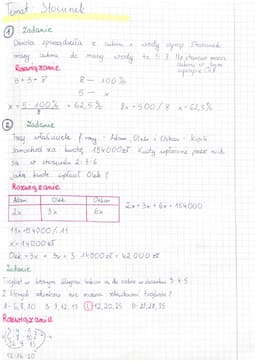 Temat: Stosunek
① Zadanie
Dorota sporządziła z cukru i wody syrop. Stosunek
masy cukru do masy wody to 5:3. Ile stanowi masa
cukru w tym
syropie
Rozwiązanie
5+3=8 8 — 100%
5 — x
x = 5·100% / 8 = 62,5% 8x = 500 /8 x = 62,5%
② Zadanie
Trzej właściciele firmy - Adam, Olek i Oskar - kupili
samochód za kwotę 154000zł. Kwoty wpłacone przez nich
są w stosunku 2:3:6.
Jaką kwotę wpłacił Olek?
Rozwiązanie
Adam Olek Oskar
2x 3x 6x
2x+3x+6x=154000
11x=154000/11
x=14000zł
Olek = 3x = 3·14000 = 42000zł
Zadanie
Trójkąt w którym długości boków są do siebie w stosunku 3:4:5
Z których odcinków nie można zbudować trójkąta?
A-6,8,10 B-9,12,15 C-12,20,25 D-21,28,35
Rozwiązanie
12:16:20